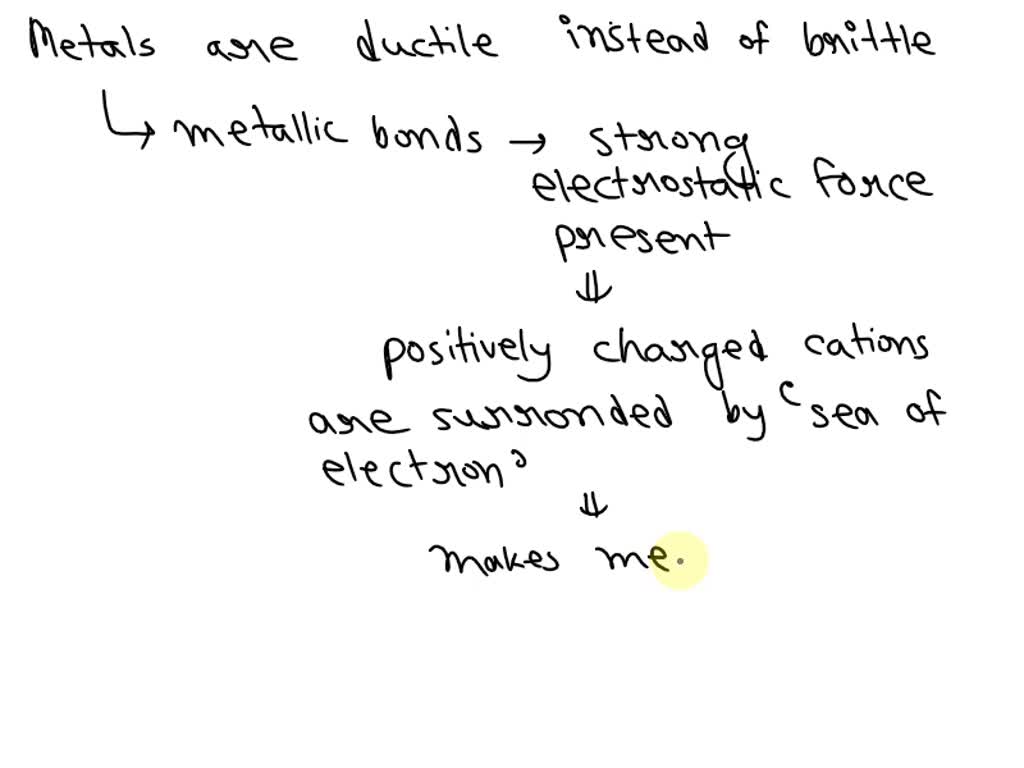 Metals are ductile instead of brittle
↳ metallic bonds → strong
electrostatic force
present
⇓
positively charged cations
are surronded by ‘sea of
electron’
⇓
makes me